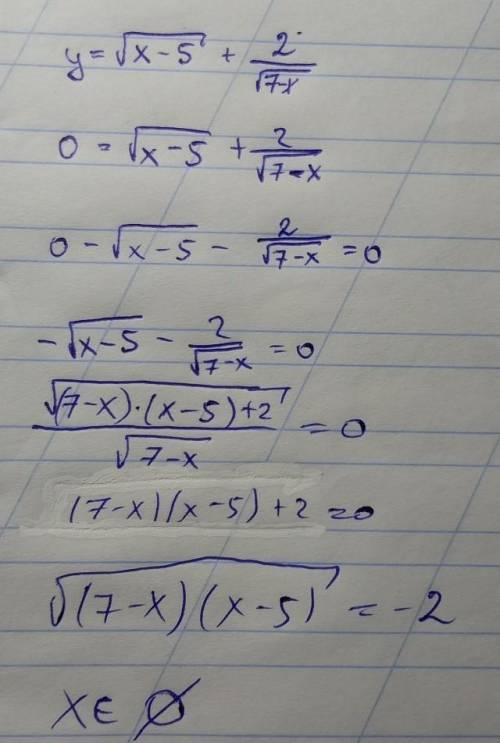 y = √(x-5) + 2/√(7-x)
0 = √(x-5) + 2/√(7-x)
0 - √(x-5) - 2/√(7-x) = 0
-√(x-5) - 2/√(7-x) = 0
√((7-x)·(x-5)+2)/√(7-x) = 0
(7-x)(x-5)+2 = 0
√((7-x)(x-5)) = -2
x ∈ ∅